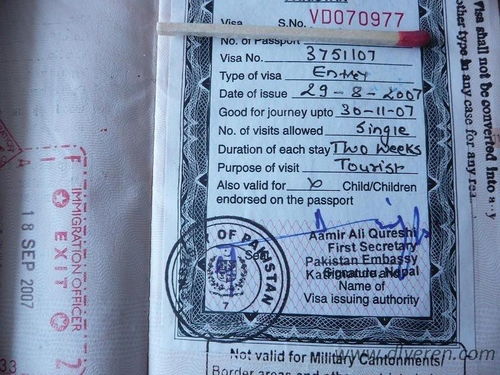 Visa S.No. VD070977
No. of Passport
Visa No. 3751107
Type of visa Entry
Date of issue 29-8-2007
Good for journey upto 30-11-07
No. of visits allowed Single
Duration of each stay Two weeks
Purpose of visit Tourist
Also valid for Child/Children
endorsed on the passport
Aamir Ali Qureshi
First Secretary
Pakistan Embassy
Kathmandu, Nepal
Signature and
Name of
Visa issuing authority
Seal
OF PAKISTAN
7
Not valid for Military Cantonments/
Border areas
Visa shall not be converted into any
other type in any case for any
IMMIGRATION OFFICER
EXIT
18 SEP 2007
33
www.diveren.com